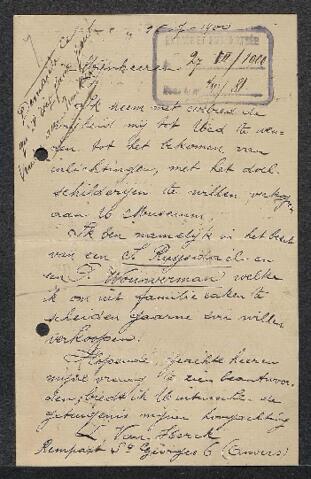 1900
27 VII / 1900
Mijnheeren
Ik neem met eerbied de
vrijheid mij tot Ued te wen-
den tot het bekomen van
inlichtingen, met het doel
schilderijen te willen verkoopen
aan U Museum;
Ik ben namelijk in het bezit
van een J. Ruysdael en
een P. Wouwerman welke
ik om uit familie zaken te
scheiden gaarne zou willen
verkoopen.
Hopende, geachte heeren
mijne vraag te zien beantwoor-
den, biedt ik U intusschen de
getuigenis mijner hoogachting
L. Van Herck
Rempart St Georges 6 (Anvers)